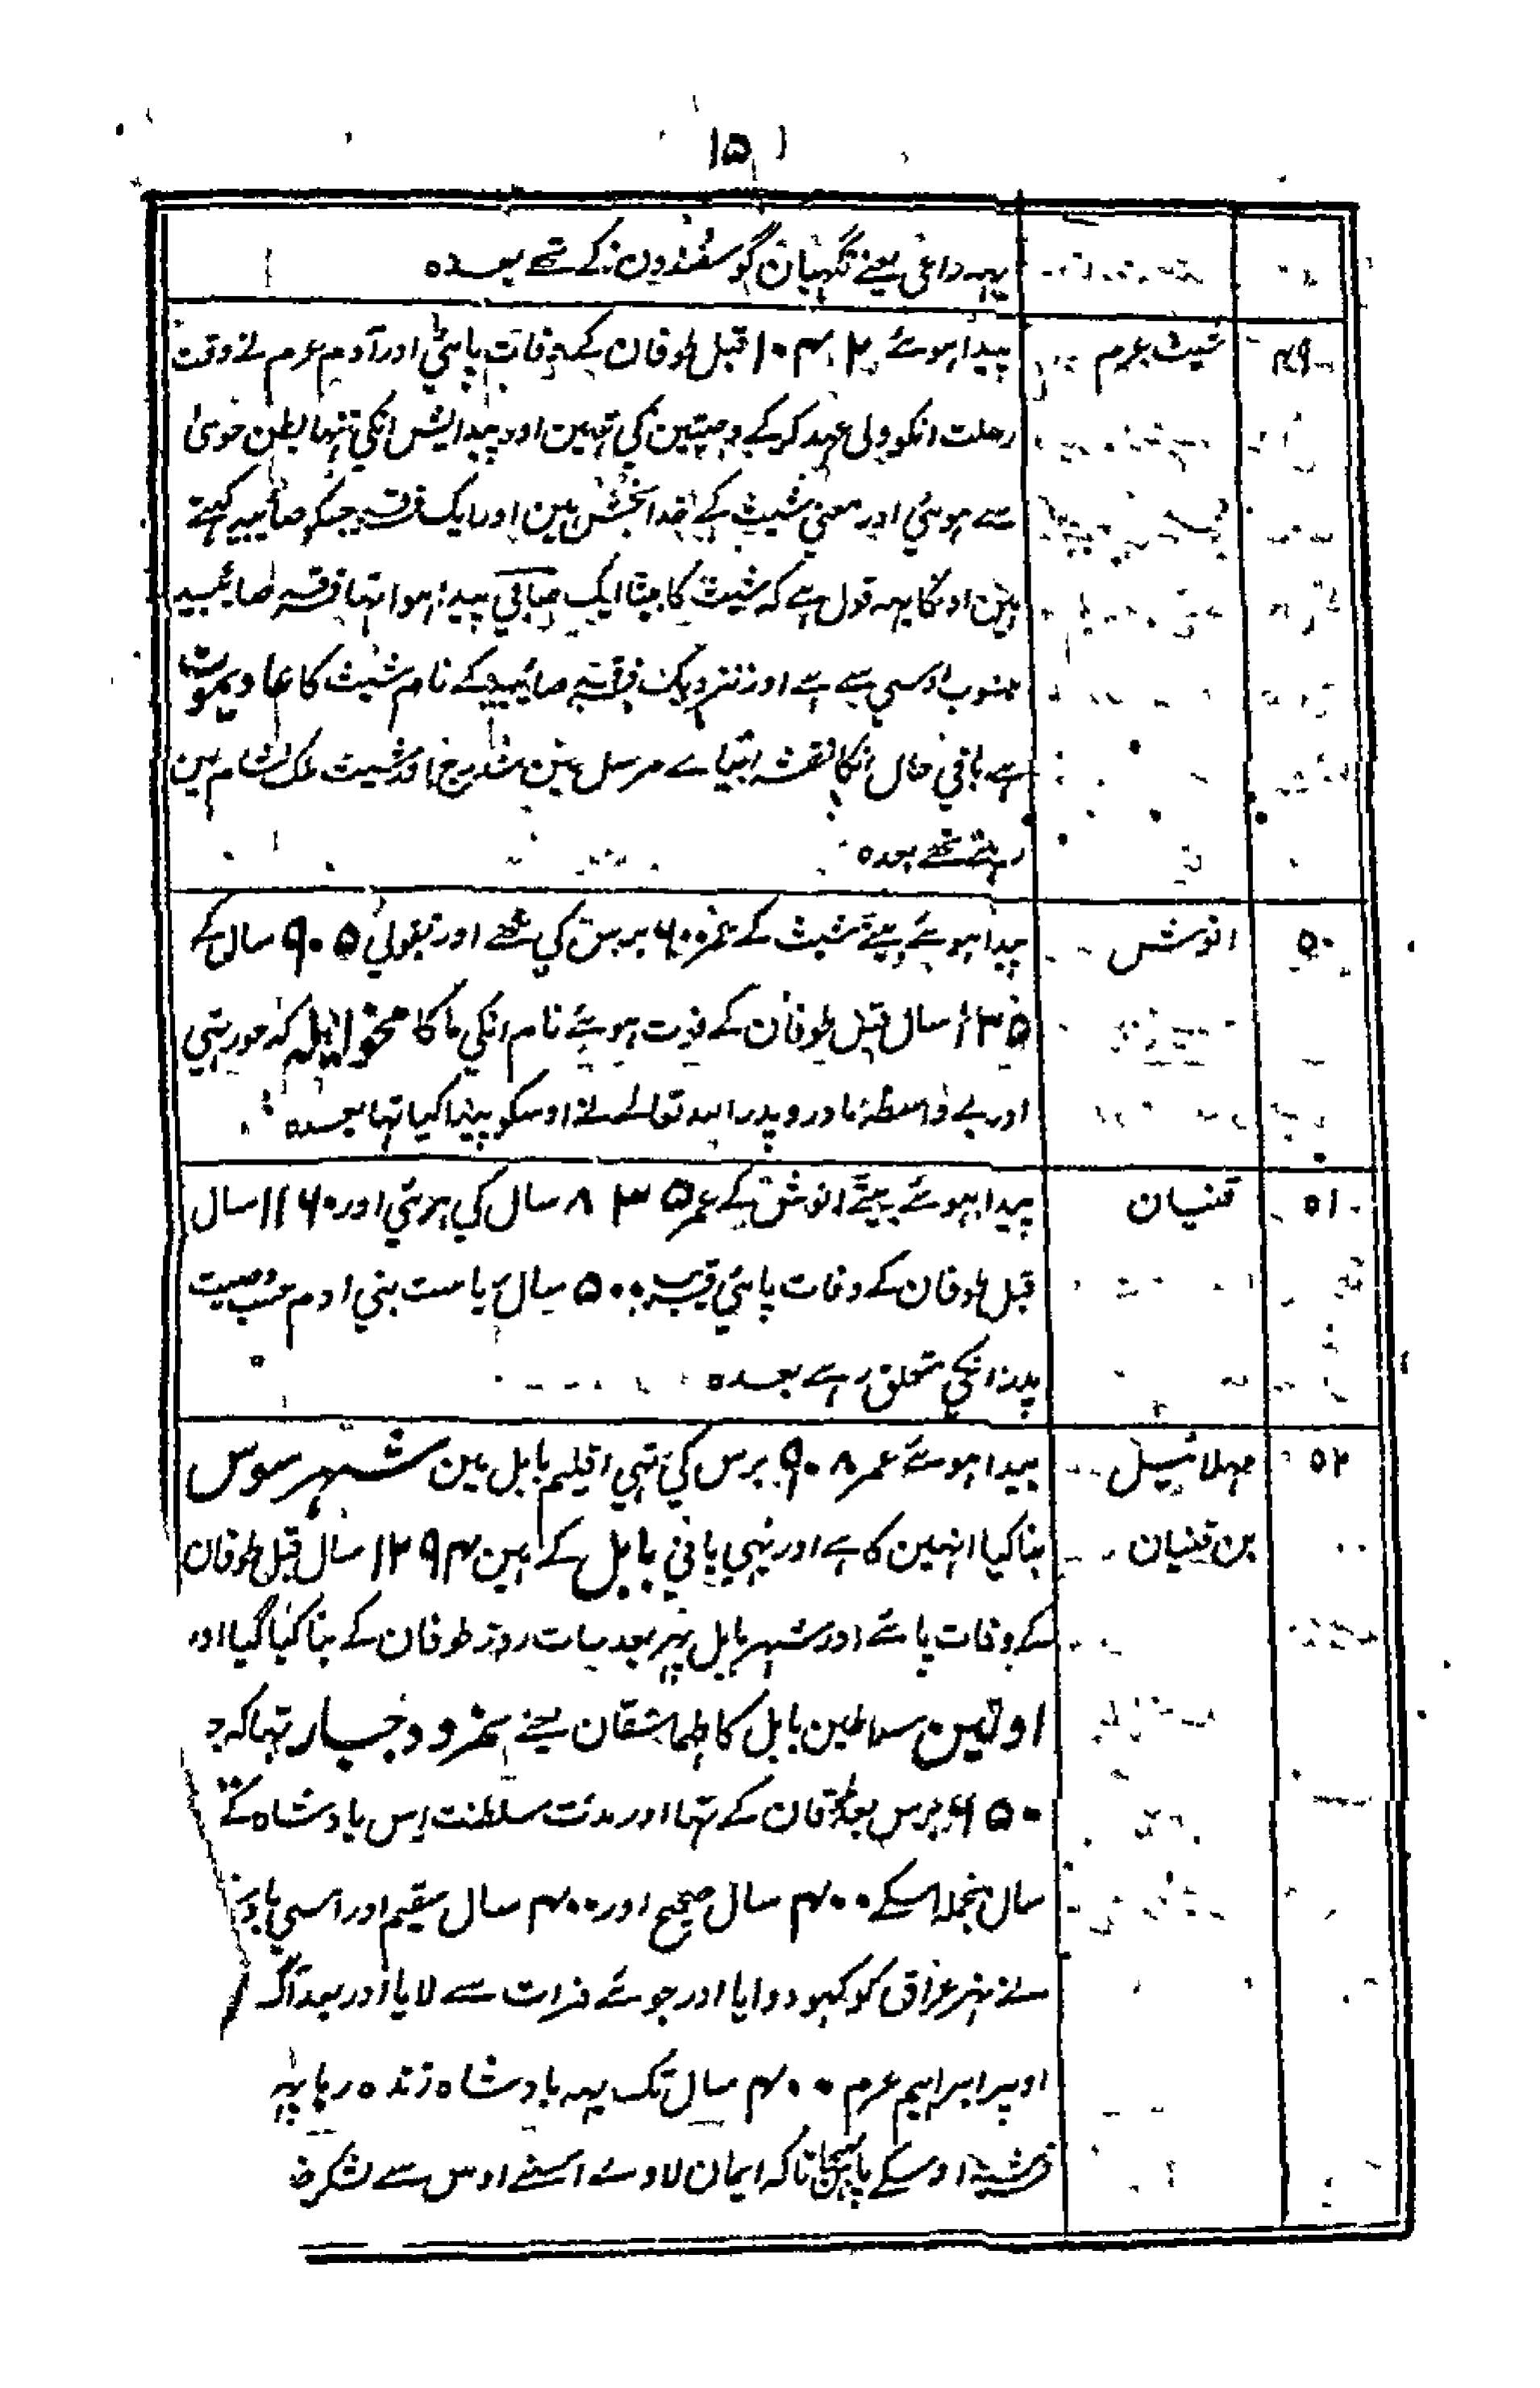 ۱۵
یہہ راعی یعنے نگہبان گوسفندون کے تھے بعدہ
۴۹ شیث عرم پیدا ہوئے ۱۰۴۲ قبل طوفان کے وفات پائی اور آدم عرم نے وقت
رحلت انکو ولی عہد کر کے وصیتین کی تہین اور پیدایش انکی تنہا بطن حوّیٰ
سے ہوئی اور معنی شیث کے خدا بخش ہین اور ایک فرقہ جسکو صائبیہ کہتے
ہین اونکا یہہ قول ہے کہ شیث کا بیٹا ایک صابی پیدا ہوا تہا فرقہ صائبیہ
منسوب اوسی سے ہے اور نزدیک فرقہ صائبیہ کے نام شیث کا عادیموث
ہے باقی حال انکا نقشہ انبیاے مرسل مین مندرج اور شیث ملک شام مین
رہتے تھے بعدہ
۵۰ انوش پیدا ہوئے بیٹے شیث کے عمر ۶۰۰ برس کی تھے اور بقولی ۹۰۵ سال کے
۱۳۵ سال قبل طوفان کے فوت ہوئے نام انکی ما کا مخوایلہ کہ حور تہی
اور بے واسطہ مادر و پدر اللہ تعالے نے اوسکو پیدا کیا تہا بعدہ
۵۱ قنیان پیدا ہوئے بیٹے انوش کے عمر ۸۳۵ سال کی ہوئی اور ۱۱۶۰ سال
قبل طوفان کے وفات پائی قریب ۵۰۰ سال ریاست بنی ادم حسب وصیت
پدر انکی متعلق رہے بعدہ
۵۲ مہلائیل پیدا ہوئے عمر ۹۰۸ برس کی تہی اقلیم بابل مین شہر سوس
بن قنیان بنا کیا انہین کا ہے اور یہی بانی بابل کے ہین ۱۲۹۴ سال قبل طوفان
کے وفات پائے اور شہر بابل پہر بعد سات روز طوفان کے بنا کیا گیا اور
اولین سلاطین بابل کا طماشقان یعنے نمرود جبار تہا کہ جو
۶۵۰ برس بعد طوفان کے تہا اور مدت سلطنت اِس بادشاہ کے
سال منجملہ اسکے ۴۰۰ سال صحیح اور ۴۰۰ سال سقیم اور اسی
نے نہر عراق کو کہودوایا اور جوئے فرات سے لایا اور بعد آگ
اوپر ابراہیم عرم ۴۰۰ سال تک یہہ بادشاہ زندہ رہا پہر
فرشتہ اوسکے پاس بہیجا تاکہ ایمان لاوے اسنے اوس سے لشکر